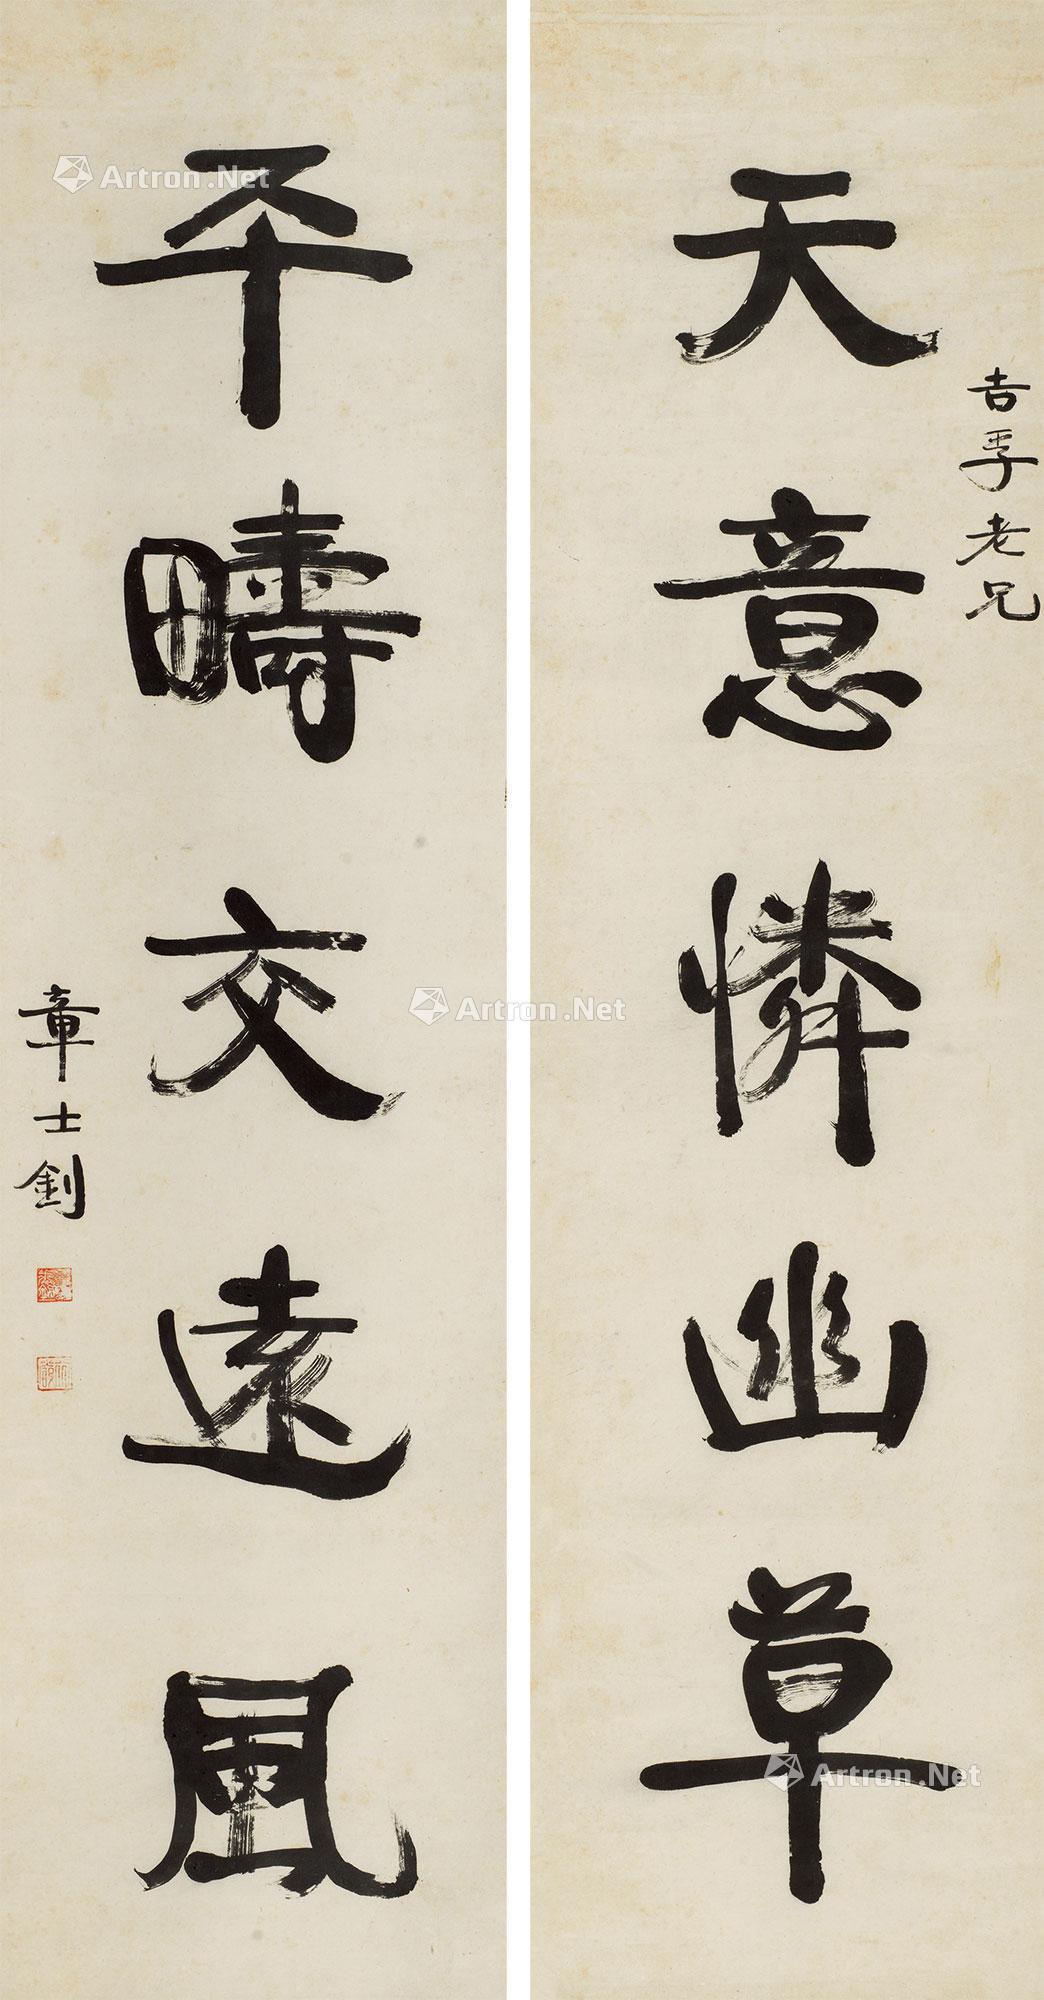 吉孚老兄
天意憐幽草
平疇交遠風
章士釗
Artron.Net
Artron.Net
Artron.Net